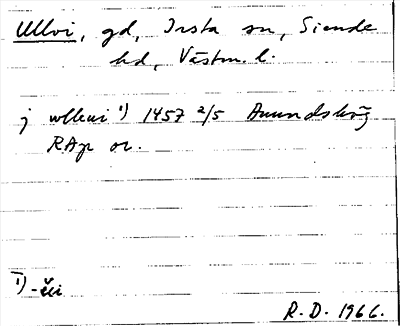 Ullvi, gd, Irsta sn, Siende
hd, Västm. l.
j wlleui ¹) 1457 2/5 Amundsbög
RAp or.
¹) -ěui
R. D. 1966.